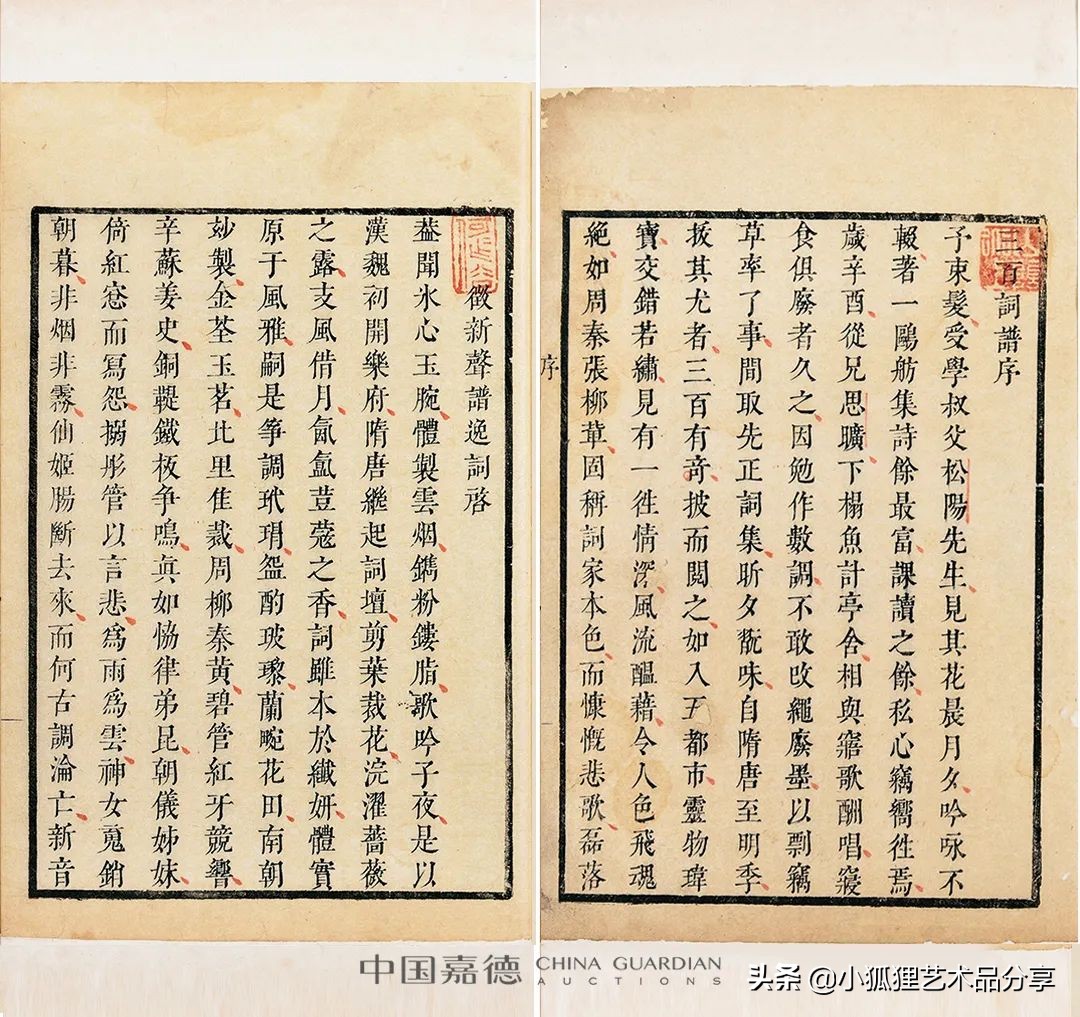 三百詞譜序
予束髮受學叔父松陽先生見其花晨月夕吟咏不
輟著一鷗舫集詩餘最富課讀之餘私心竊嚮徃焉
歲辛酉從兄思曠下榻魚計亭舍相與寤歌酬唱寢
食俱廢者久之因勉作數調不敢改繩廢墨以剽竊
草率了事間取先正詞集昕夕翫味自隋唐至明季
拔其尤者三百有竒披而閱之如入五都市靈物瑋
寶交錯若繡見有一徃情深風流醞藉令人色飛魂
絕如周秦張柳草固稱詞家本色而慷慨悲歌磊落
序
徵新聲譜逸詞啓
葢聞氷心玉腕體製雲烟鐫粉鏤脂歌吟子夜是以
漢魏初開樂府隋唐繼起詞壇剪葉裁花浣濯薔薇
之露支風借月氤氲荳蔻之香詞雖本於纖妍體實
原于風雅嗣是箏調玳瑁盌酌玻瓈蘭畹花田南朝
妙製金荃玉茗北里隹裁周柳秦黄碧管紅牙競響
辛蘇姜史銅鞮鐵板争鳴真如恊律弟昆朝儀姊妹
倚紅窓而寫怨搦彤管以言悲爲雨爲雲神女䰟銷
朝暮非烟非霧仙姬腸斷去來而何古調淪亡新音
中国嘉德 CHINA GUARDIAN AUCTIONS
头条@小狐狸艺术品分享